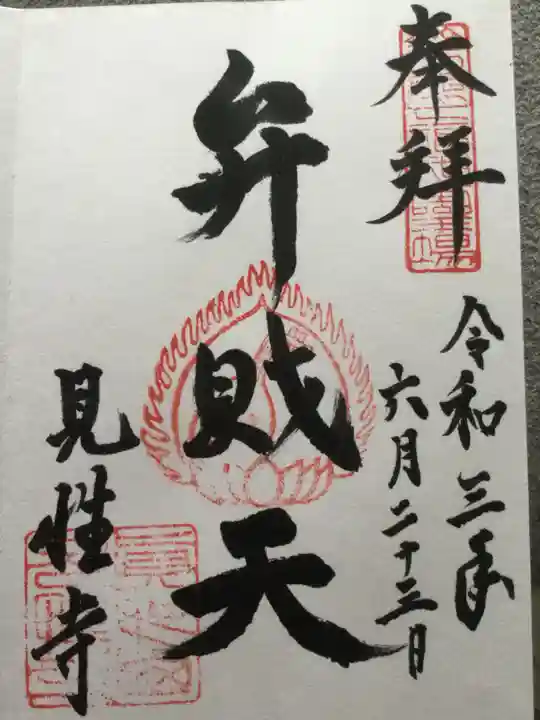 奉拝
令和三年
六月二十三日
弁財天
見性寺